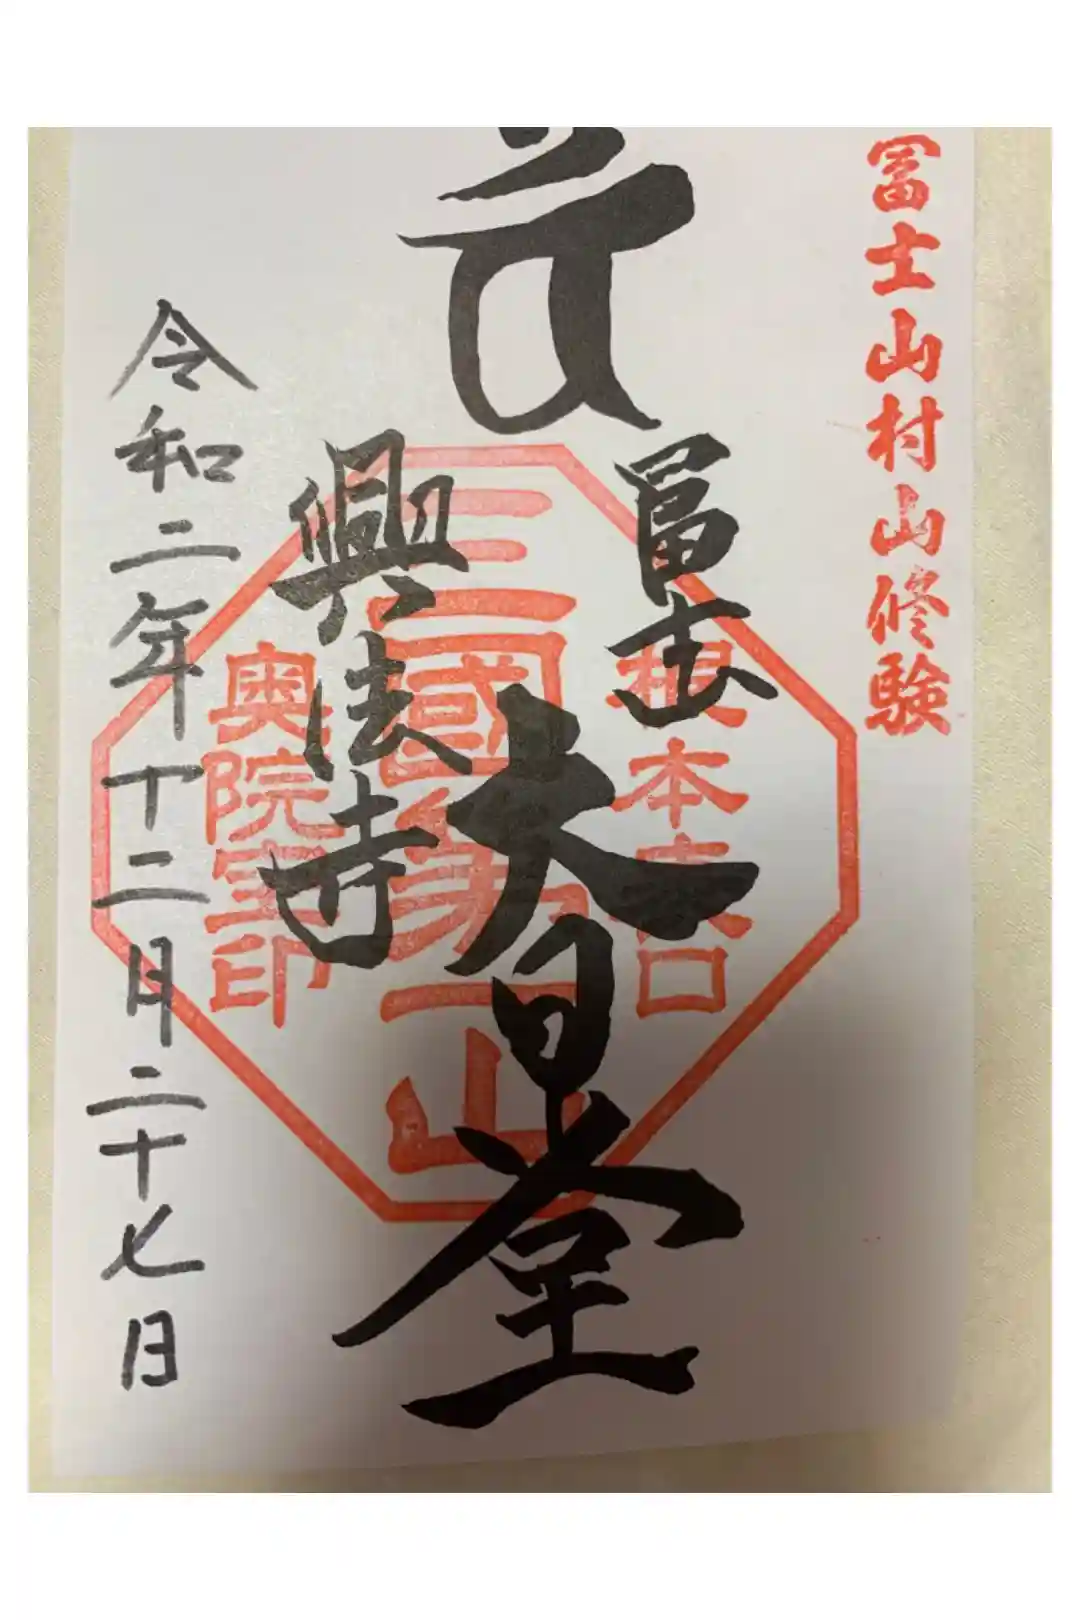 冨士山村山修験
冨士
大日堂
興法寺
根本
三國第一山
奥院宝印
令和二年十二月二十七日